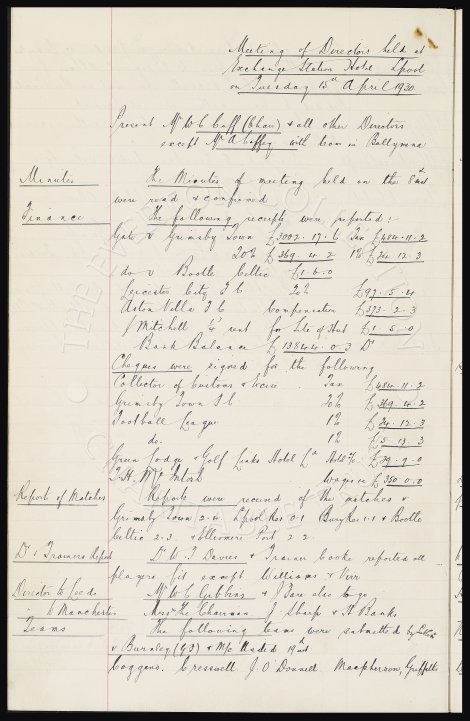 Meeting of Directors held at
Exchange Station Hotel Lpool
on Tuesday 15th April 1930.
Present Mr W C Cuff (Chair) & all other Directors
except Mr A Coffey with team in Ballymena
Minutes The Minutes of meeting held on the 8th inst
were read & confirmed
Finance The following receipts were reported:-
Gate v Grimsby Town £3002.17.6 Tax £484.11.2
20% £369.4.2 1% £24.12.3
do v Bootle Celtic £1.6.0
Leicester City F C 20% £97.5.4
Aston Villa F C compensation £373.2.3
J Mitchell rent for Site of Hut £1.5.0
Bank Balance £13844.0.3 Dr
Cheques were signed for the following
Collector of Customs & Excise Tax £484.11.2
Grimsby Town F C 20% £369.4.2
Football League 1% £24.12.3
do. 1% £5.13.3
Green Lodge & Golf Links Hotel Ld Hotel £79.9.0
T.H. McIntosh Wages £350.0.0
Report of Matches Reports were received of the matches v
Grimsby Town 2.4. Lpool Res 0.1 Bury Res 1.1 & Bootle
Celtic 2.3. & Ellesmere Port 2.2
Dr & Trainers Report Dr W. J Davies & Trainer Cooke reported all
players fit except Williams & Kerr
Director to Leeds Mr W C Gibbins & J Dare also to go
" to Manchester Messrs The Chairman J Sharp & H Banks
Teams The following teams were submitted
v Burnley (G.P) & M/c United 19th inst
Coggins. Cresswell J. O'Donnell. Macpherson, Griffiths